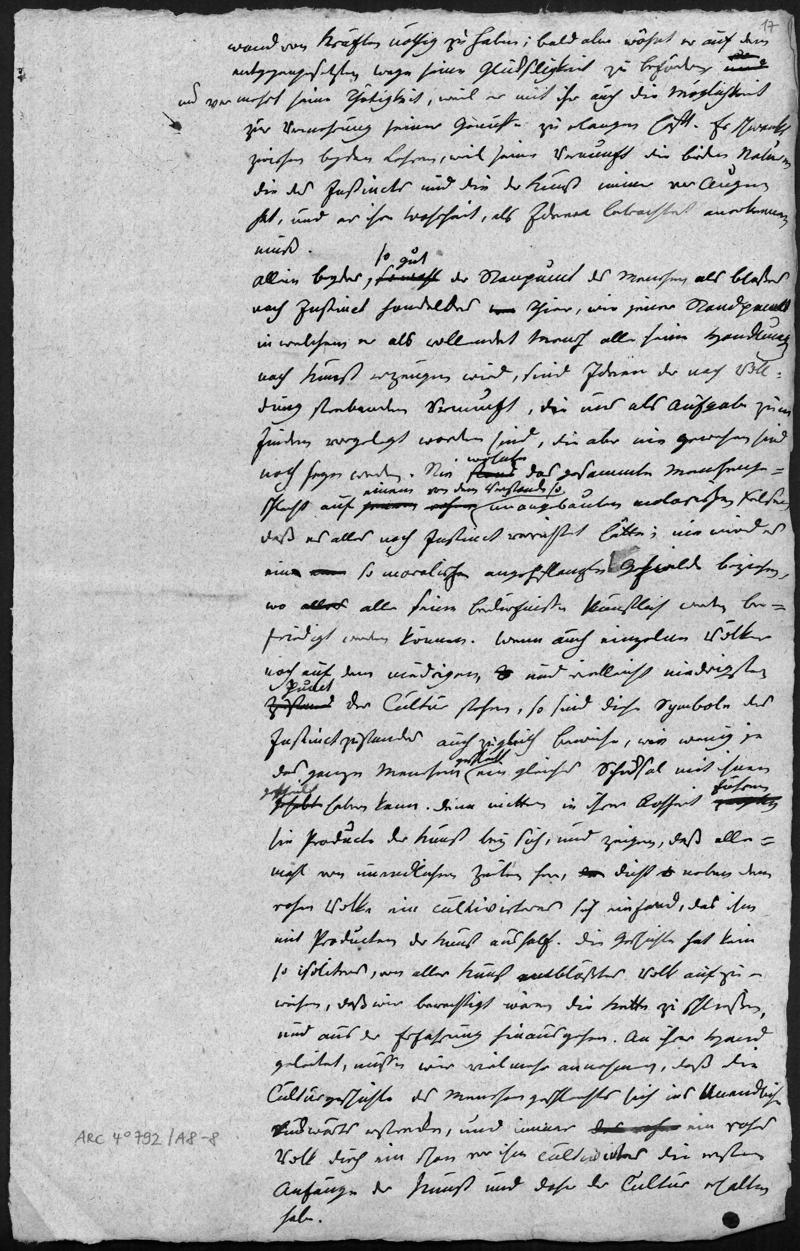 17
wand von Kräften nöthig zu haben; bald aber wähnt er auf dem
entgegengesetzten Wege seine Glückseligkeit zu befördern
und vermehrt seine Thätigkeit, weil er mit ihr auch die Möglichkeit
zur Vermehrung seiner Genüsse zu erlangen hofft. Er schwankt
zwischen beyden Lehren, weil seine Vernunft die beiden Naturen
die des Instincts und die der Kunst immer vor Augen
hat, und er ihre Wahrheit, als Ideen betrachtet anerkennen
muß.
so gut
Allein beydes, der Standpunct des Menschen als bloßes
nach Instinct handelndes Thier, wie jener Standpunct
in welchem er als vollendet Mensch alle seine Handlungen
nach Kunst erzeugen wird, sind Ideen der nach Voll-
dung strebenden Vernunft, die uns als Aufgabe zum
Finden vorgelegt worden sind, die aber nie gewesen sind
welches
noch seyn werden. Nie das gesammte Menschenge=
einem von dem Verstande so
schlecht auf unangebauten
daß es alles nach Instinct verrichtet hätte; nie wird es
ein so moralisches angepflanztes Gefilde beziehen,
wo alle seine Bedürfnisse künstlich werden be=
friedigt werden können. Wenn auch einzelne Völker
noch auf dem niedrigen, und vielleicht niedrigsten
Punct
der Cultur stehen, so sind diese Symbole des
Instinctzustandes auch zugleich Beweise, wie wenig je
geschlecht
das ganze Menschen ein gleiches Schicksal mit ihnen
getheilt
haben kann. Denn mitten in ihrer Rohheit führen
sie Producte der Kunst bey sich, und zeigen, daß alle=
mahl von unendlichen Zeiten her, dicht neben dem
rohen Volke ein cultivirteres sich einfand, das ihm
mit Producten der Kunst aushalf. Die Geschichte hat kein
so isolirtes, von aller Kunst entblößtes Volk aufzu-
weisen, daß wir berechtigt wären die Kette zu schließen,
und aus der Erfahrung hinauszugehen. An ihrer Hand
geleitet, müssen wir vielmehr annehmen, daß die
Culturgeschichte des Menschengeschlechts sich ins Unendliche
rückwärts erstrecke, und immer ein rohes
Volk durch ein schon vor ihm cultivirtes die ersten
Anfänge der Kunst und daher der Cultur erhalten
habe.
ARC 4° 792/A8-8